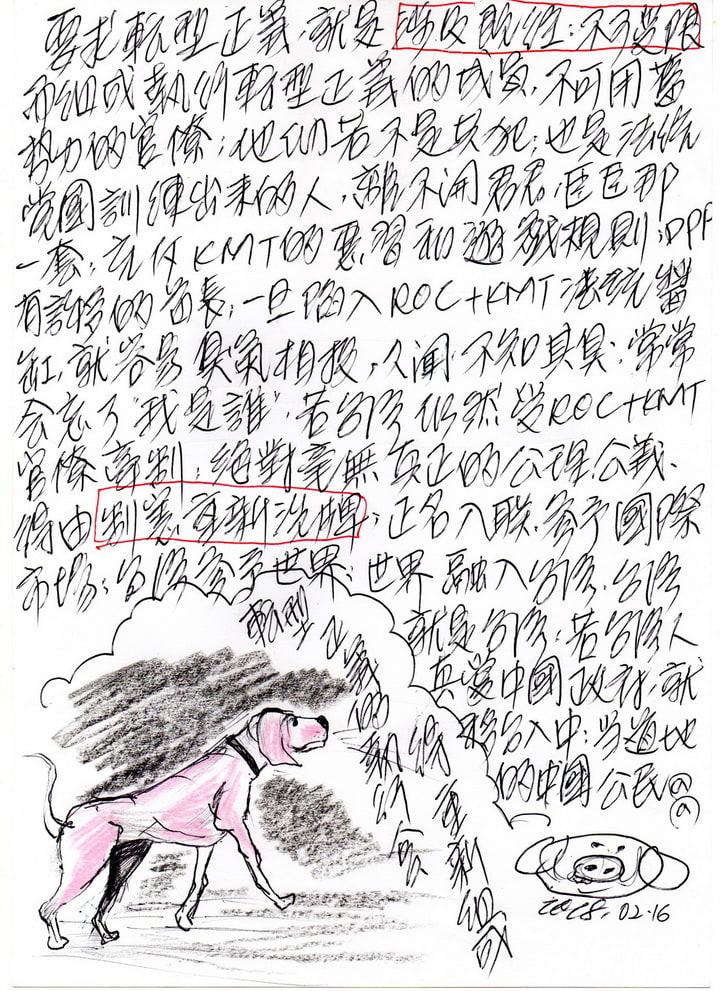 要求転型正義,就是涉及既往:不可受限
而組成執行転型正義的成員,不可用舊
勢力的官僚;他們若不是共犯;也是法統
党國訓練出來的人,離不開君君,臣臣那
一套;KMT的惡習和遊戲規則;DPP
有許多的首長;一旦陷入ROC+KMT法統醬
缸,就容易臭氣相投,久聞不知其臭;常常
会忘了"我是誰",若台湾仍然受ROC+KMT
官僚牽制;絕對毫無真正的公理公義、
得由制憲重新洗牌;正名入联.參予國際
市場;台湾參予世界;世界融入台湾.台湾
就是台湾;若台湾人
真愛中國政府,就
移台入中;当道地
的中國公民@@
転型正義的執行
得重新組成
2018.02.16